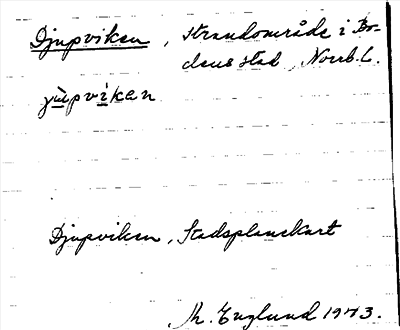 Djupviken, strandområde i Bo-
dens stad, Norrb. L.
jùpvìken
Djupviken, Stadsplanekart
Th. Englund 1973.